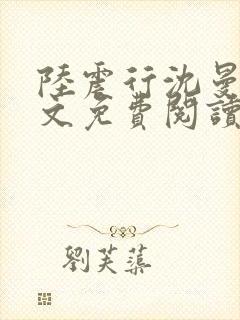 陸震行沈曼
文免費閱讀
劉芙蕖